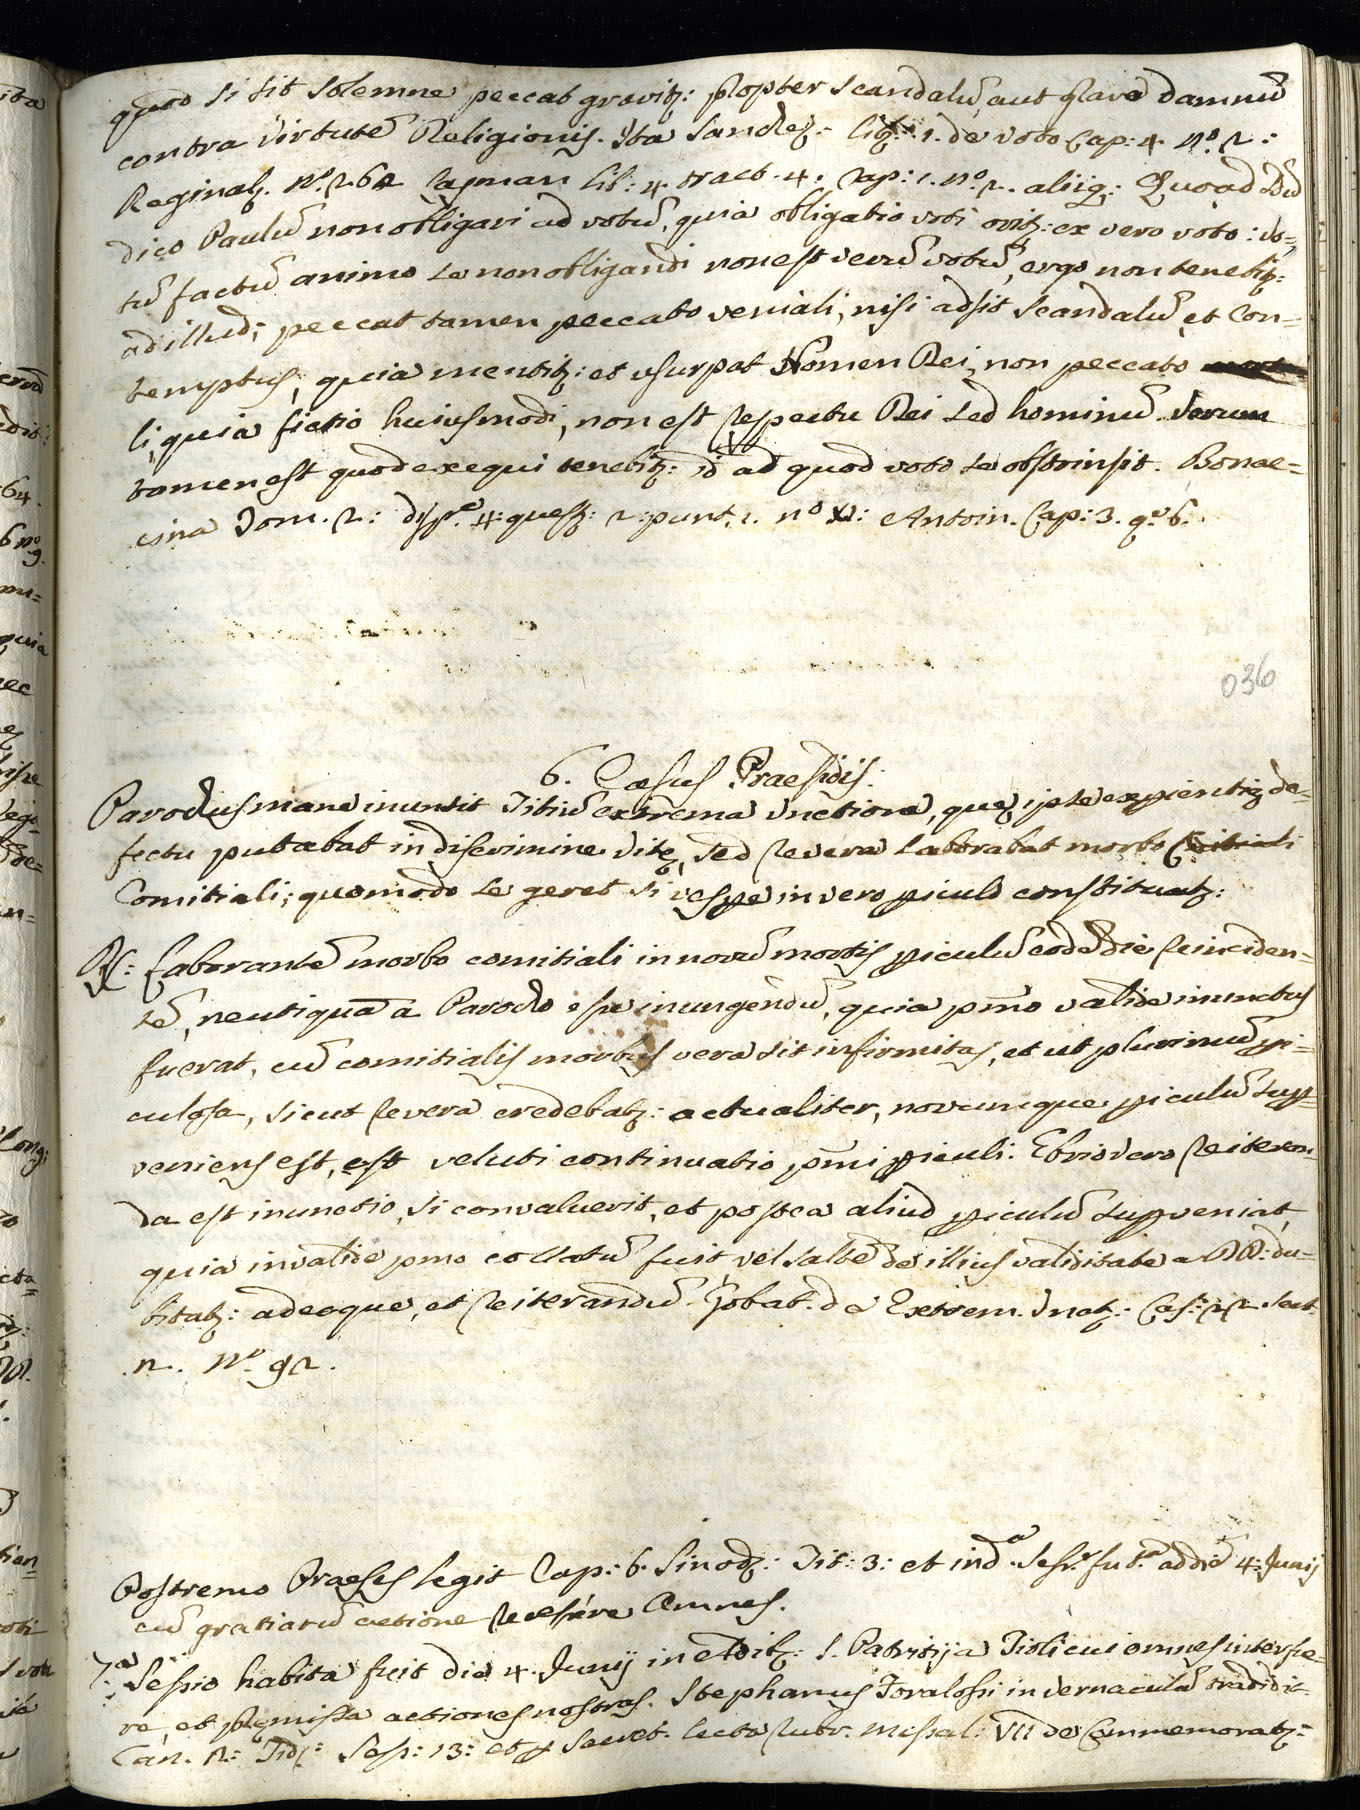 quod si sit solemne peccat gravitʒ: propter scandalū, aut grave damnū
contra virtutē Religionis. Ita Sancheʒ: lib: 1. de voto Cap: 4. nº. 2:
Reginalʒ. nº. 262 Layman lib: 4. tract. 4. Cap: 1. nº. 2. aliiq: Quoad 2dū
dico Paulū non obligari ad votū, quia obligatio voti oritʒ: ex vero voto: vo=
tū factū animo se non obligandi non est verū votū, ergo non tenebitʒ:
ad illud; peccat tamen peccato veniali, nisi adsit scandalū, et con=
temptus, quia mentitʒ: et usurpat Nomen Dei, non peccato
li, quia fictio huiusmodi, non est respectu Dei sed hominū verum
tamen est quod exequi tenebitʒ: id ad quod voto se obstrinsit. Bonac=
cina Tom. 2: disp.e 4: quest: 2: punt. 1. nº Antoin. Cap: 3. qº 6.
036
6. Casus Praesidis.
Parochus mane inunsit Titiū extrema unctione, quē ipse experientię de=
fectu putabat in discrimine vitę, sed revera laborabat morbo
Comitiali; quomodo se geret si vespe in vero piculo constituatʒ:
R: Laborantē morbo comitiali in novū mortis piculū eodē die reinciden=
tē, neutiquā a Parocho esse inungendū, quia pmo valide inunctus
fuerat, cū comitialis morbus vera sit infirmitas, et ut plurimū pi=
culosa, sicut revera credebatʒ: actualiter, novumque piculū sup=
veniens est, est veluti continuatio pmi piculi. Ebrio vero reiteran=
da est inunctio, si convaluerit, et postea aliud piculū supveniat,
quia invalide pmo collatū fuit vel saltē de illius validitate a DD: du=
bitatʒ: adeoque, et reiterandū. Gobat. de Extrem. Unctʒ: Cas: 22 sect.
2. nº. 92.
Postremo Praeses legit Cap: 6. Sinodʒ: Tit: 3: et inda. Sess. fut.a ad diē 4: Junij
cū gratiarū actione recessere Omnes.
7.a Sessio habita fuit die 4. Junij in ędibʒ: S. Patritija Tioli cui omnes interfue=
re, et pręmissa actiones nostras. Stephanus Toralossi in vernaculā tradidit
Can. 2: Trid: Sess: 13: et p Secret. lecta rubr. Missal: VII de Commemoratʒ: